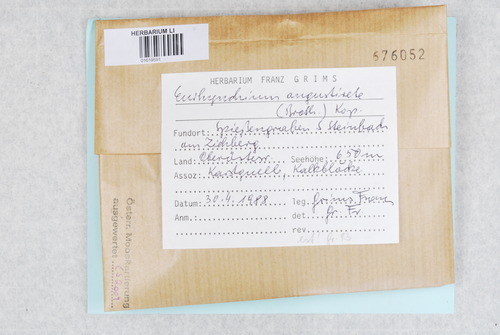 HERBARIUM LI
676052
HERBARIUM FRANZ GRIMS
Eurhynchium angustirete
(Broth.) Kop.
Fundort: S Steinbach
am Ziehberg
Land: Oberösterr. Seehöhe: 650m
Assoz: Karstquell, Kalkblöcke
Datum: 30.4.1988 leg. Grims Franz
Anm.: det. Gr. Fr.
rev.
Österr. Mooskartierung
ausgewertet